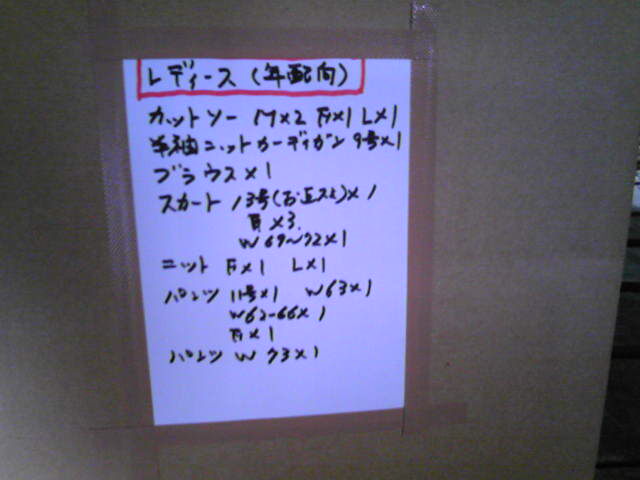 レディース (年配向)
カットソー M×2 F×1 L×1
半袖ニットカーディガン 9号×1
ブラウス×1
スカート 13号 ×1
×3
W69〜72×1
ニット F×1 L×1
パンツ 11号×1 W63×1
W62-66×1
F×1
パンツ W 73×1